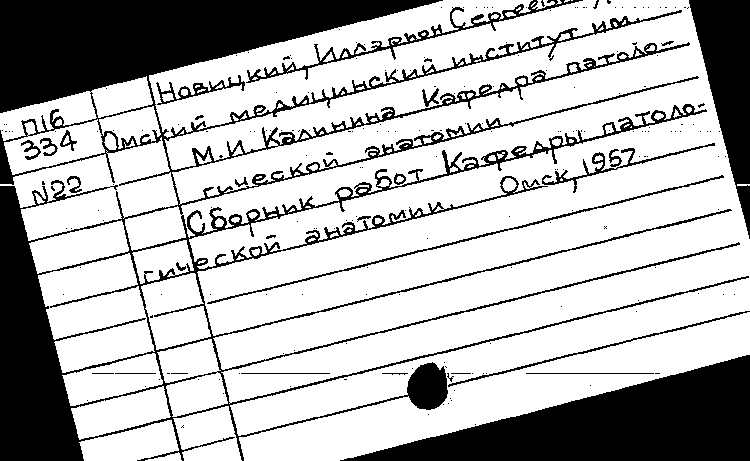 Новицкий, Илларион Сергееви
П16 Омский медицинский институт им.
334 М.И. Калинина. Кафедра патоло-
N22 гической анатомии.
Сборник работ Кафедры патоло-
гической анатомии. Омск, 1957